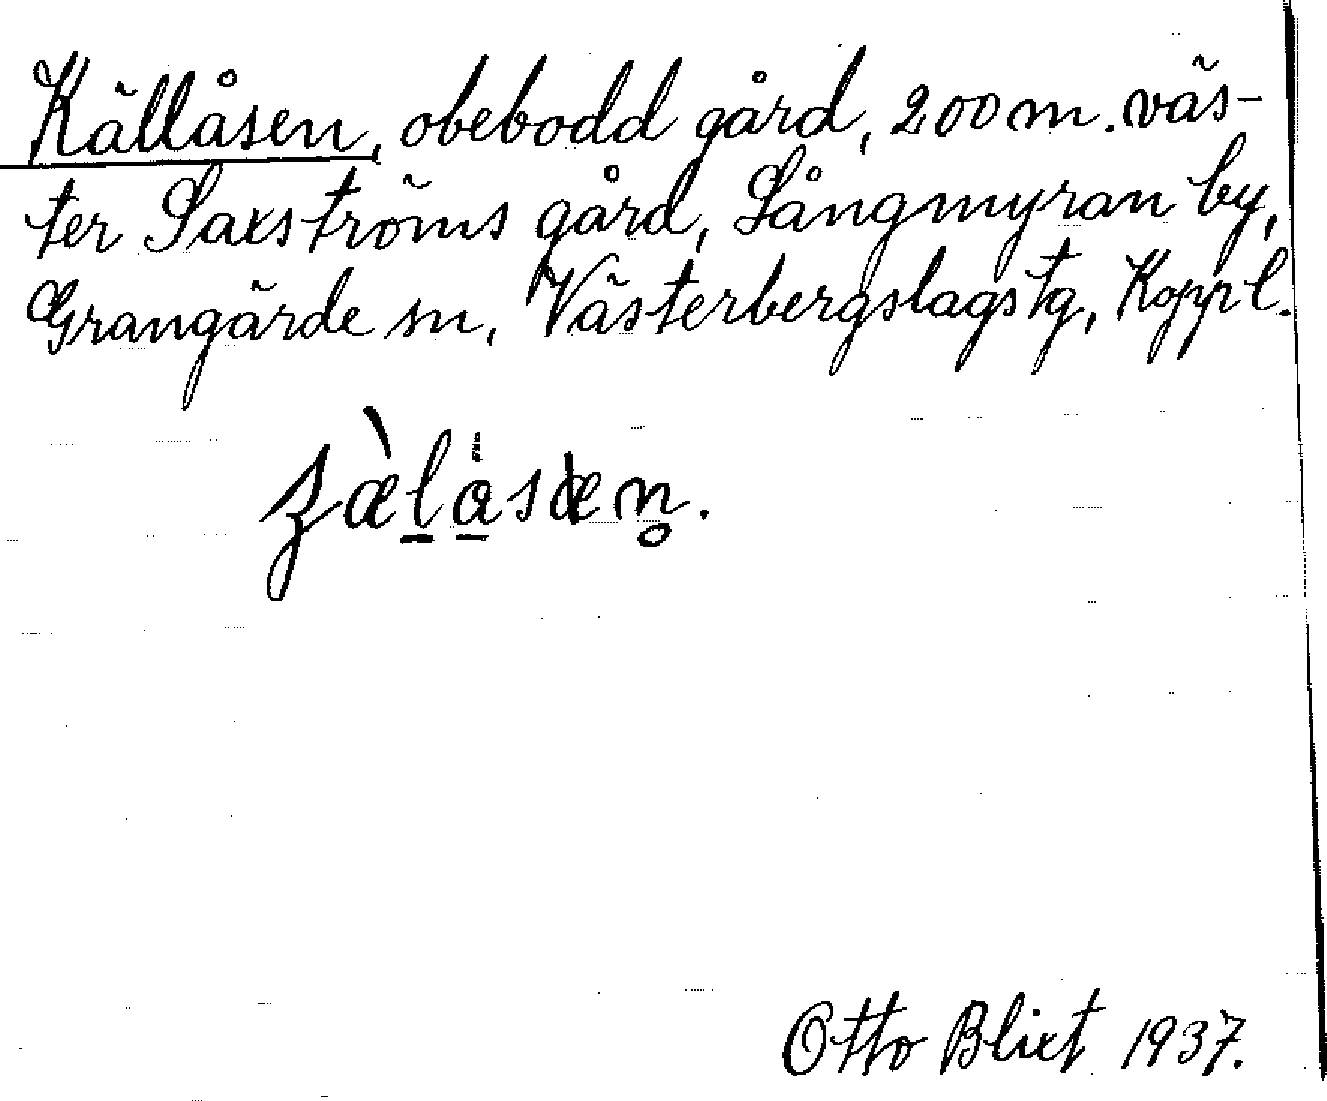 Källåsen, obebodd gård, 200 m. väs-
ter Saxströms gård, Långmyran by,
Grangärde sn, Västerbergslags tg, Koppl.
Otto Blixt 1937.